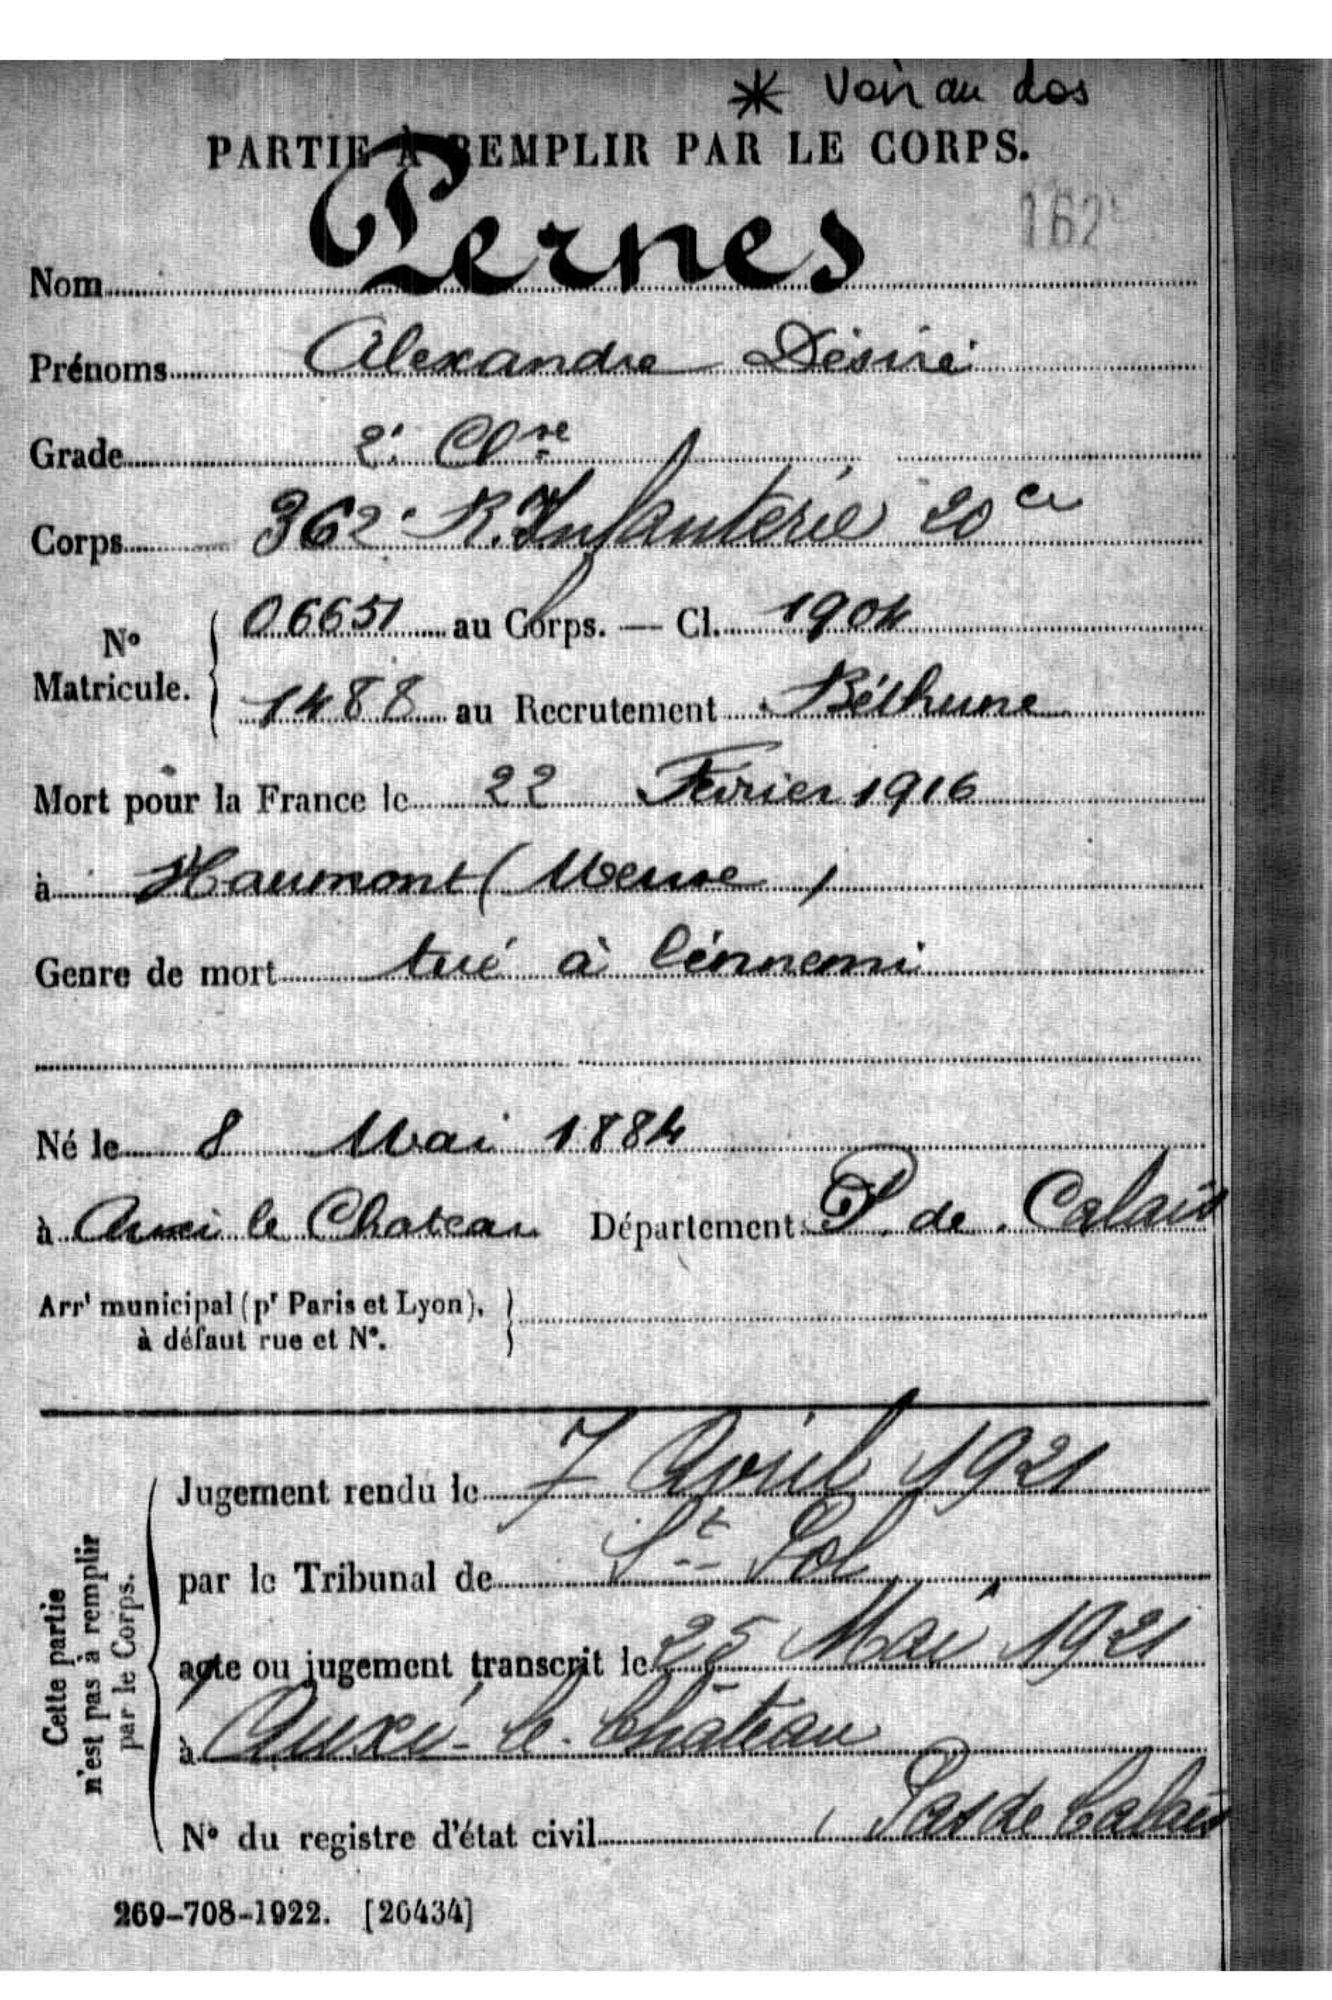 * Voir au dos
PARTIE À REMPLIR PAR LE CORPS.
162
Nom Pernes
Prénoms Alexandre Désiré
Grade 2e Clsse
Corps 362e R. Infanterie 20 Cie
N° Matricule. { 06651 au Corps. — Cl. 1904
1488 au Recrutement Béthune
Mort pour la France le 22 Février 1916
à Haumont (Meuse)
Genre de mort tué à l'énnemi
Né le 8 Mai 1884
à Auxi le Chateau Département P. de Calais
Arrt municipal (pr Paris et Lyon), à défaut rue et N°. }
Cette partie n'est pas à remplir par le Corps.
Jugement rendu le 7 Avril 1921
par le Tribunal de St Pol
acte ou jugement transcrit le 25 Mai 1921
à Auxi-le-Château
Pas de Calais
N° du registre d'état civil
269-708-1922. [26434]